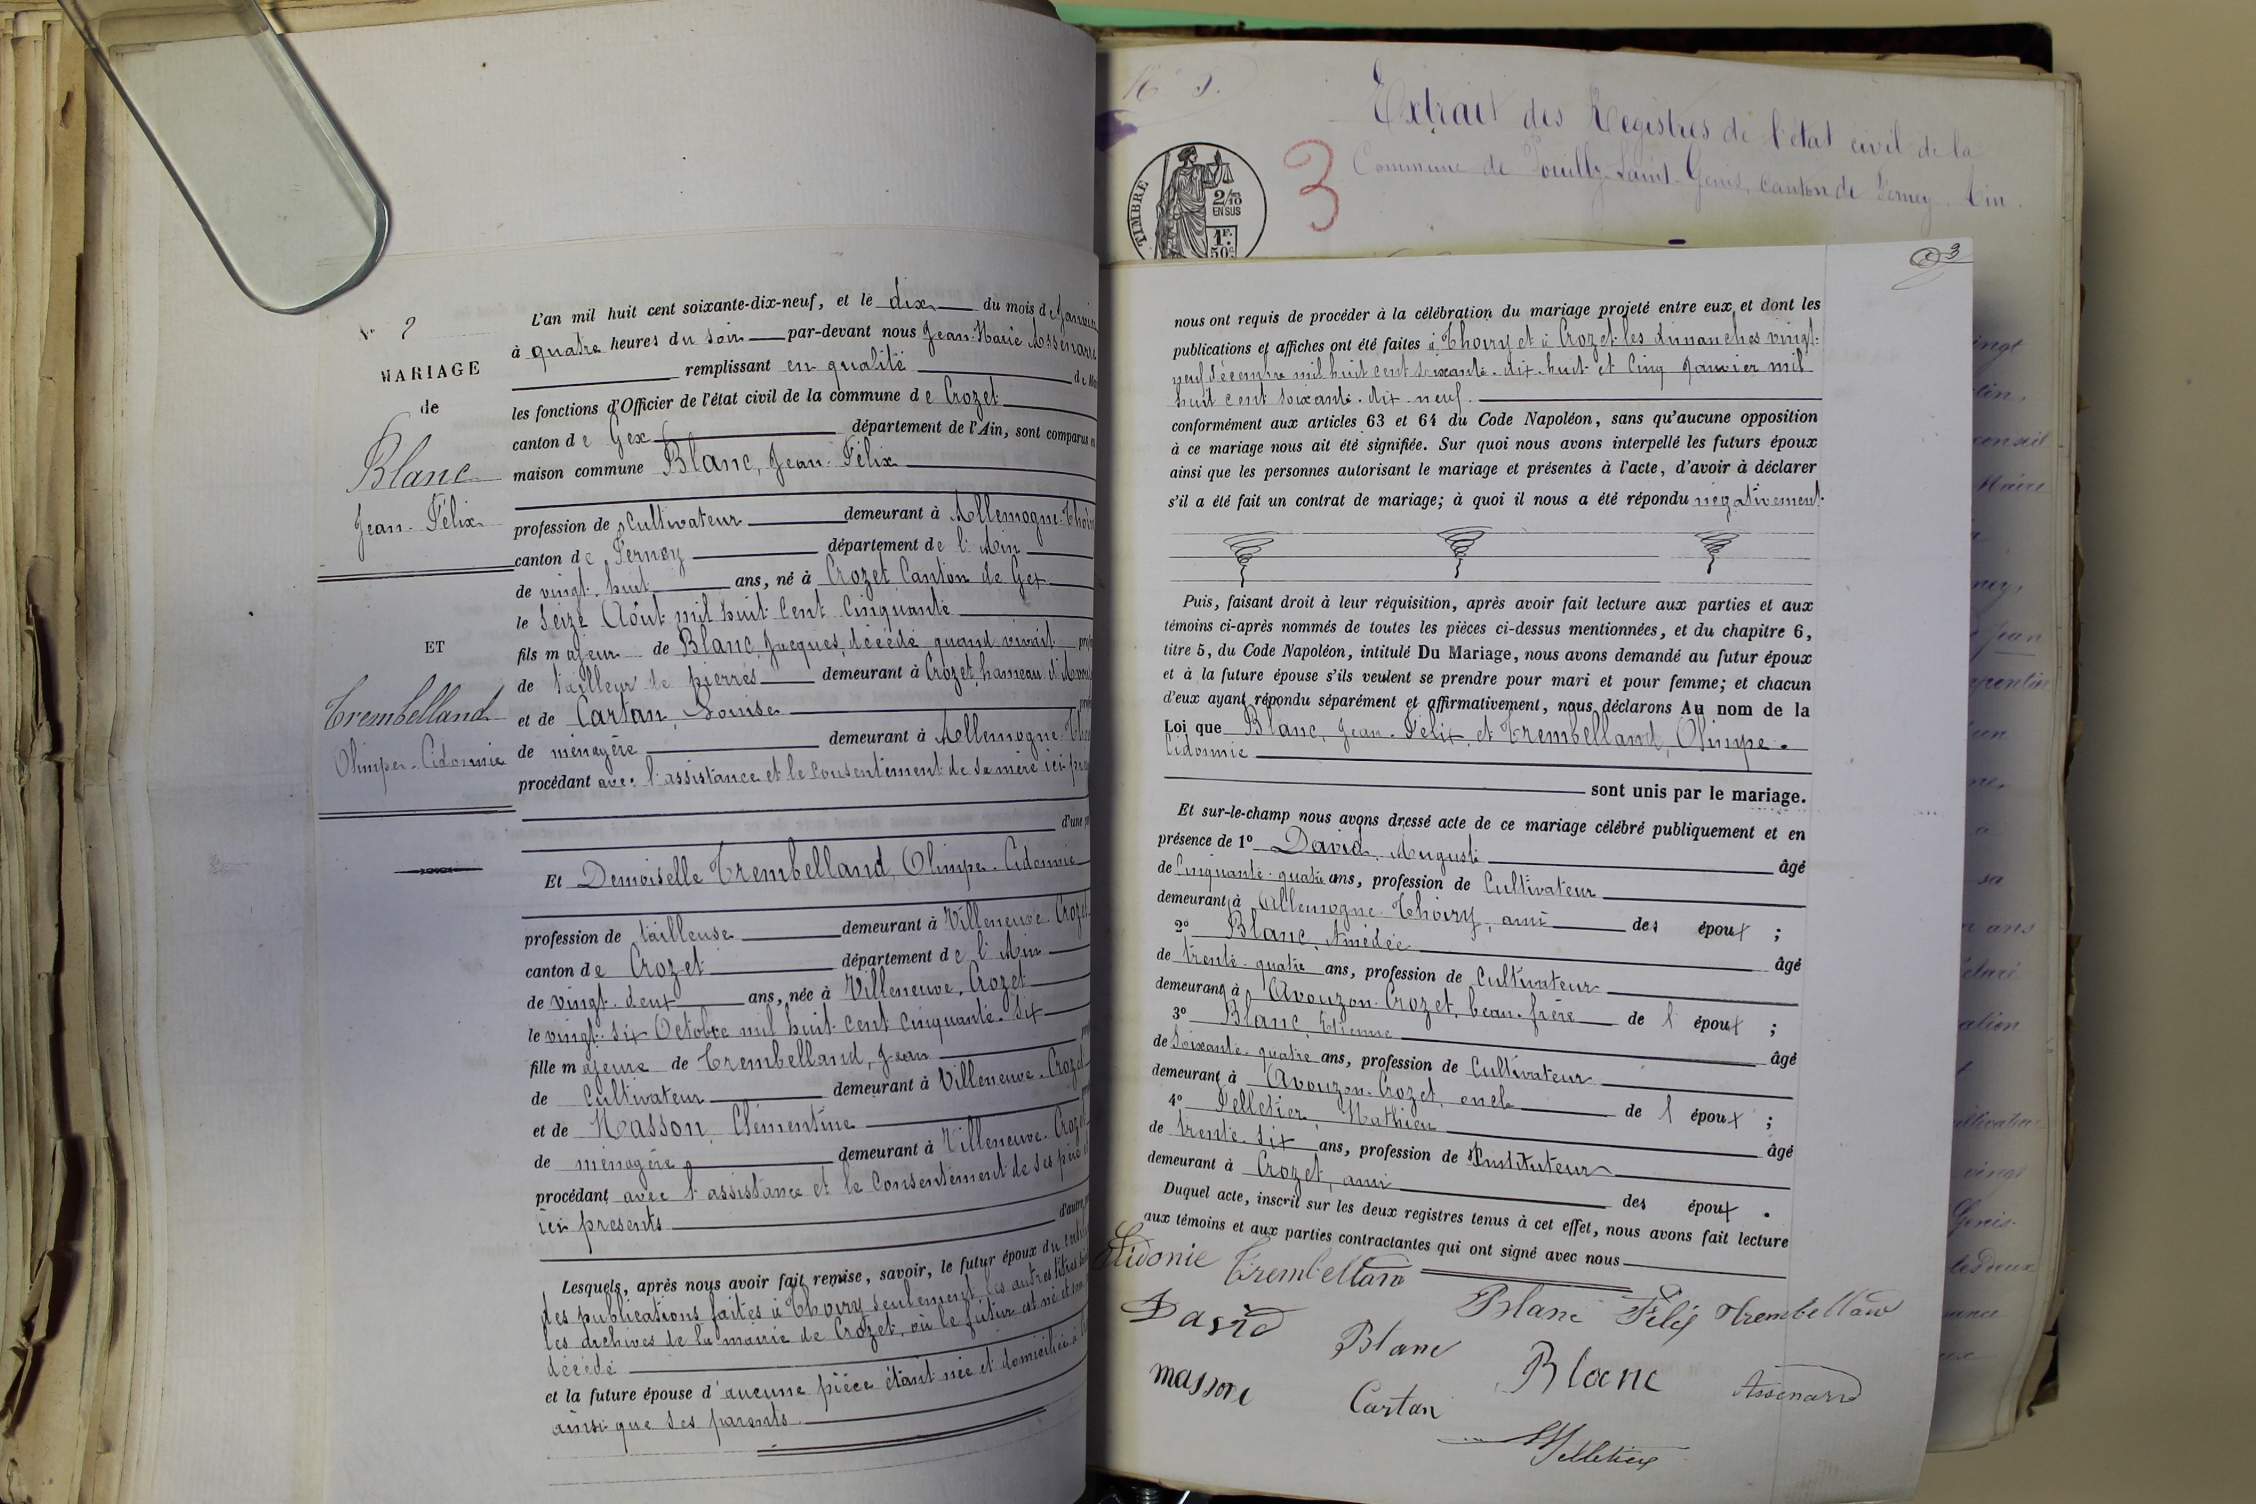 N° 2
MARIAGE
de
Blanc
Jean-Félix
ET
Trembelland
Olimpe-Cidonnie
L'an mil huit cent soixante-dix-neuf, et le dix du mois de Janvier
à quatre heures du soir par-devant nous Jean-Marie Assénard
remplissant en qualité de
les fonctions d'Officier de l'état civil de la commune de Crozet
canton de Gex département de l'Ain, sont comparus en
maison commune Blanc, Jean-Félix
profession de cultivateur demeurant à Allemogne-Thoiry
canton de Ferney département de l'Ain
de vingt-huit ans, né à Crozet Canton de Gex
le seize Août mil huit cent cinquante
fils majeur de Blanc, Jacques, décédé quand vivait
de tailleur de pierres demeurant à Crozet, hameau d'
et de Cartan, Louise
de ménagère demeurant à Allemogne-
procédant avec l'assistance et le consentement de sa mère ici
d'une
Et Demoiselle Trembelland, Olimpe-Cidonnie
profession de tailleuse demeurant à Villeneuve-Crozet
canton de Crozet département de l'Ain
de vingt-deux ans, née à Villeneuve, Crozet
le vingt-six Octobre mil huit cent cinquante-six
fille majeure de Trembelland, Jean
de Cultivateur demeurant à Villeneuve-Crozet
et de Masson, Clémentine
de ménagère demeurant à Villeneuve-Crozet
procédant avec l'assistance et le consentement de ses père et
ici présents
d'autre
Lesquels, après nous avoir fait remise, savoir, le futur époux du
des publications faites à Thoiry seulement, les autres titres
les archives de la mairie de Crozet, où le futur est né et son
décédé
et la future épouse d'aucune pièce étant née et domiciliée à
ainsi que ses parents
N° 3.
Extrait des Registres de l'état civil de la
Commune de Pouilly-Saint-Genis, canton de Ferney, Ain.
TIMBRE
2/10
EN SUS
1F.
50c
3
3
nous ont requis de procéder à la célébration du mariage projeté entre eux, et dont les
publications et affiches ont été faites à Thoiry et à Crozet les dimanches vingt-
neuf décembre mil huit cent soixante-dix-huit et cinq Janvier mil
huit cent soixante-dix-neuf.
conformément aux articles 63 et 64 du Code Napoléon, sans qu'aucune opposition
à ce mariage nous ait été signifiée. Sur quoi nous avons interpellé les futurs époux
ainsi que les personnes autorisant le mariage et présentes à l'acte, d'avoir à déclarer
s'il a été fait un contrat de mariage; à quoi il nous a été répondu négativement.
Puis, faisant droit à leur réquisition, après avoir fait lecture aux parties et aux
témoins ci-après nommés de toutes les pièces ci-dessus mentionnées, et du chapitre 6,
titre 5, du Code Napoléon, intitulé Du Mariage, nous avons demandé au futur époux
et à la future épouse s'ils veulent se prendre pour mari et pour femme; et chacun
d'eux ayant répondu séparément et affirmativement, nous déclarons Au nom de la
Loi que Blanc, Jean-Félix, et Trembelland, Olimpe-
Cidonnie
sont unis par le mariage.
Et sur-le-champ nous avons dressé acte de ce mariage célébré publiquement et en
présence de 1° David, Auguste âgé
de Cinquante-quatre ans, profession de Cultivateur
demeurant à Allemogne-Thoiry, ami des époux ;
2° Blanc, Amédée âgé
de trente-quatre ans, profession de Cultivateur
demeurant à Avouzon-Crozet, beau-frère de l'époux ;
3° Blanc, Etienne âgé
de Soixante-quatre ans, profession de Cultivateur
demeurant à Avouzon-Crozet, oncle de l'époux ;
4° Pelletier, Mathieu âgé
de trente-six ans, profession de Instituteur
demeurant à Crozet, ami des époux .
Duquel acte, inscrit sur les deux registres tenus à cet effet, nous avons fait lecture
aux témoins et aux parties contractantes qui ont signé avec nous
Sidonie Trembelland
Blanc Félix Trembelland
David
Blanc
Blanc
Assénard
masson
Cartan
Pelletier